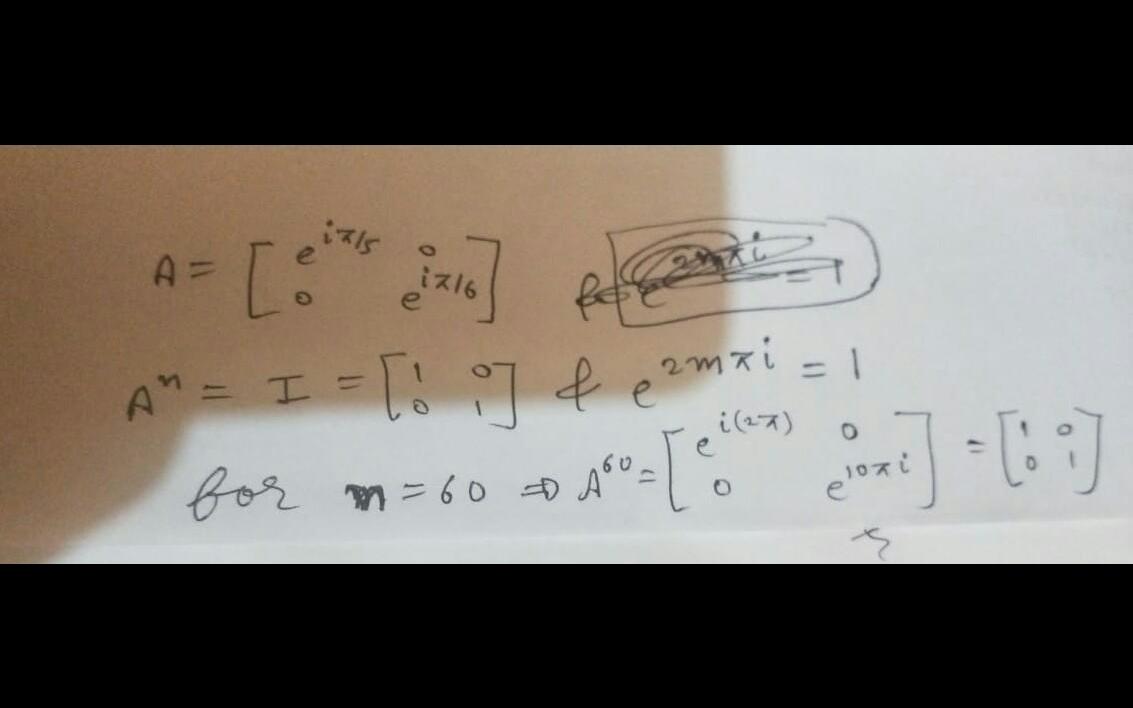 A = [ e^{iπ/5} 0 ; 0 e^{iπ/6} ]
A^n = I = [ 1 0 ; 0 1 ] & e^{2mπi} = 1
for n = 60 ⇒ A^{60} = [ e^{i(2π)} 0 ; 0 e^{10πi} ] = [ 1 0 ; 0 1 ]